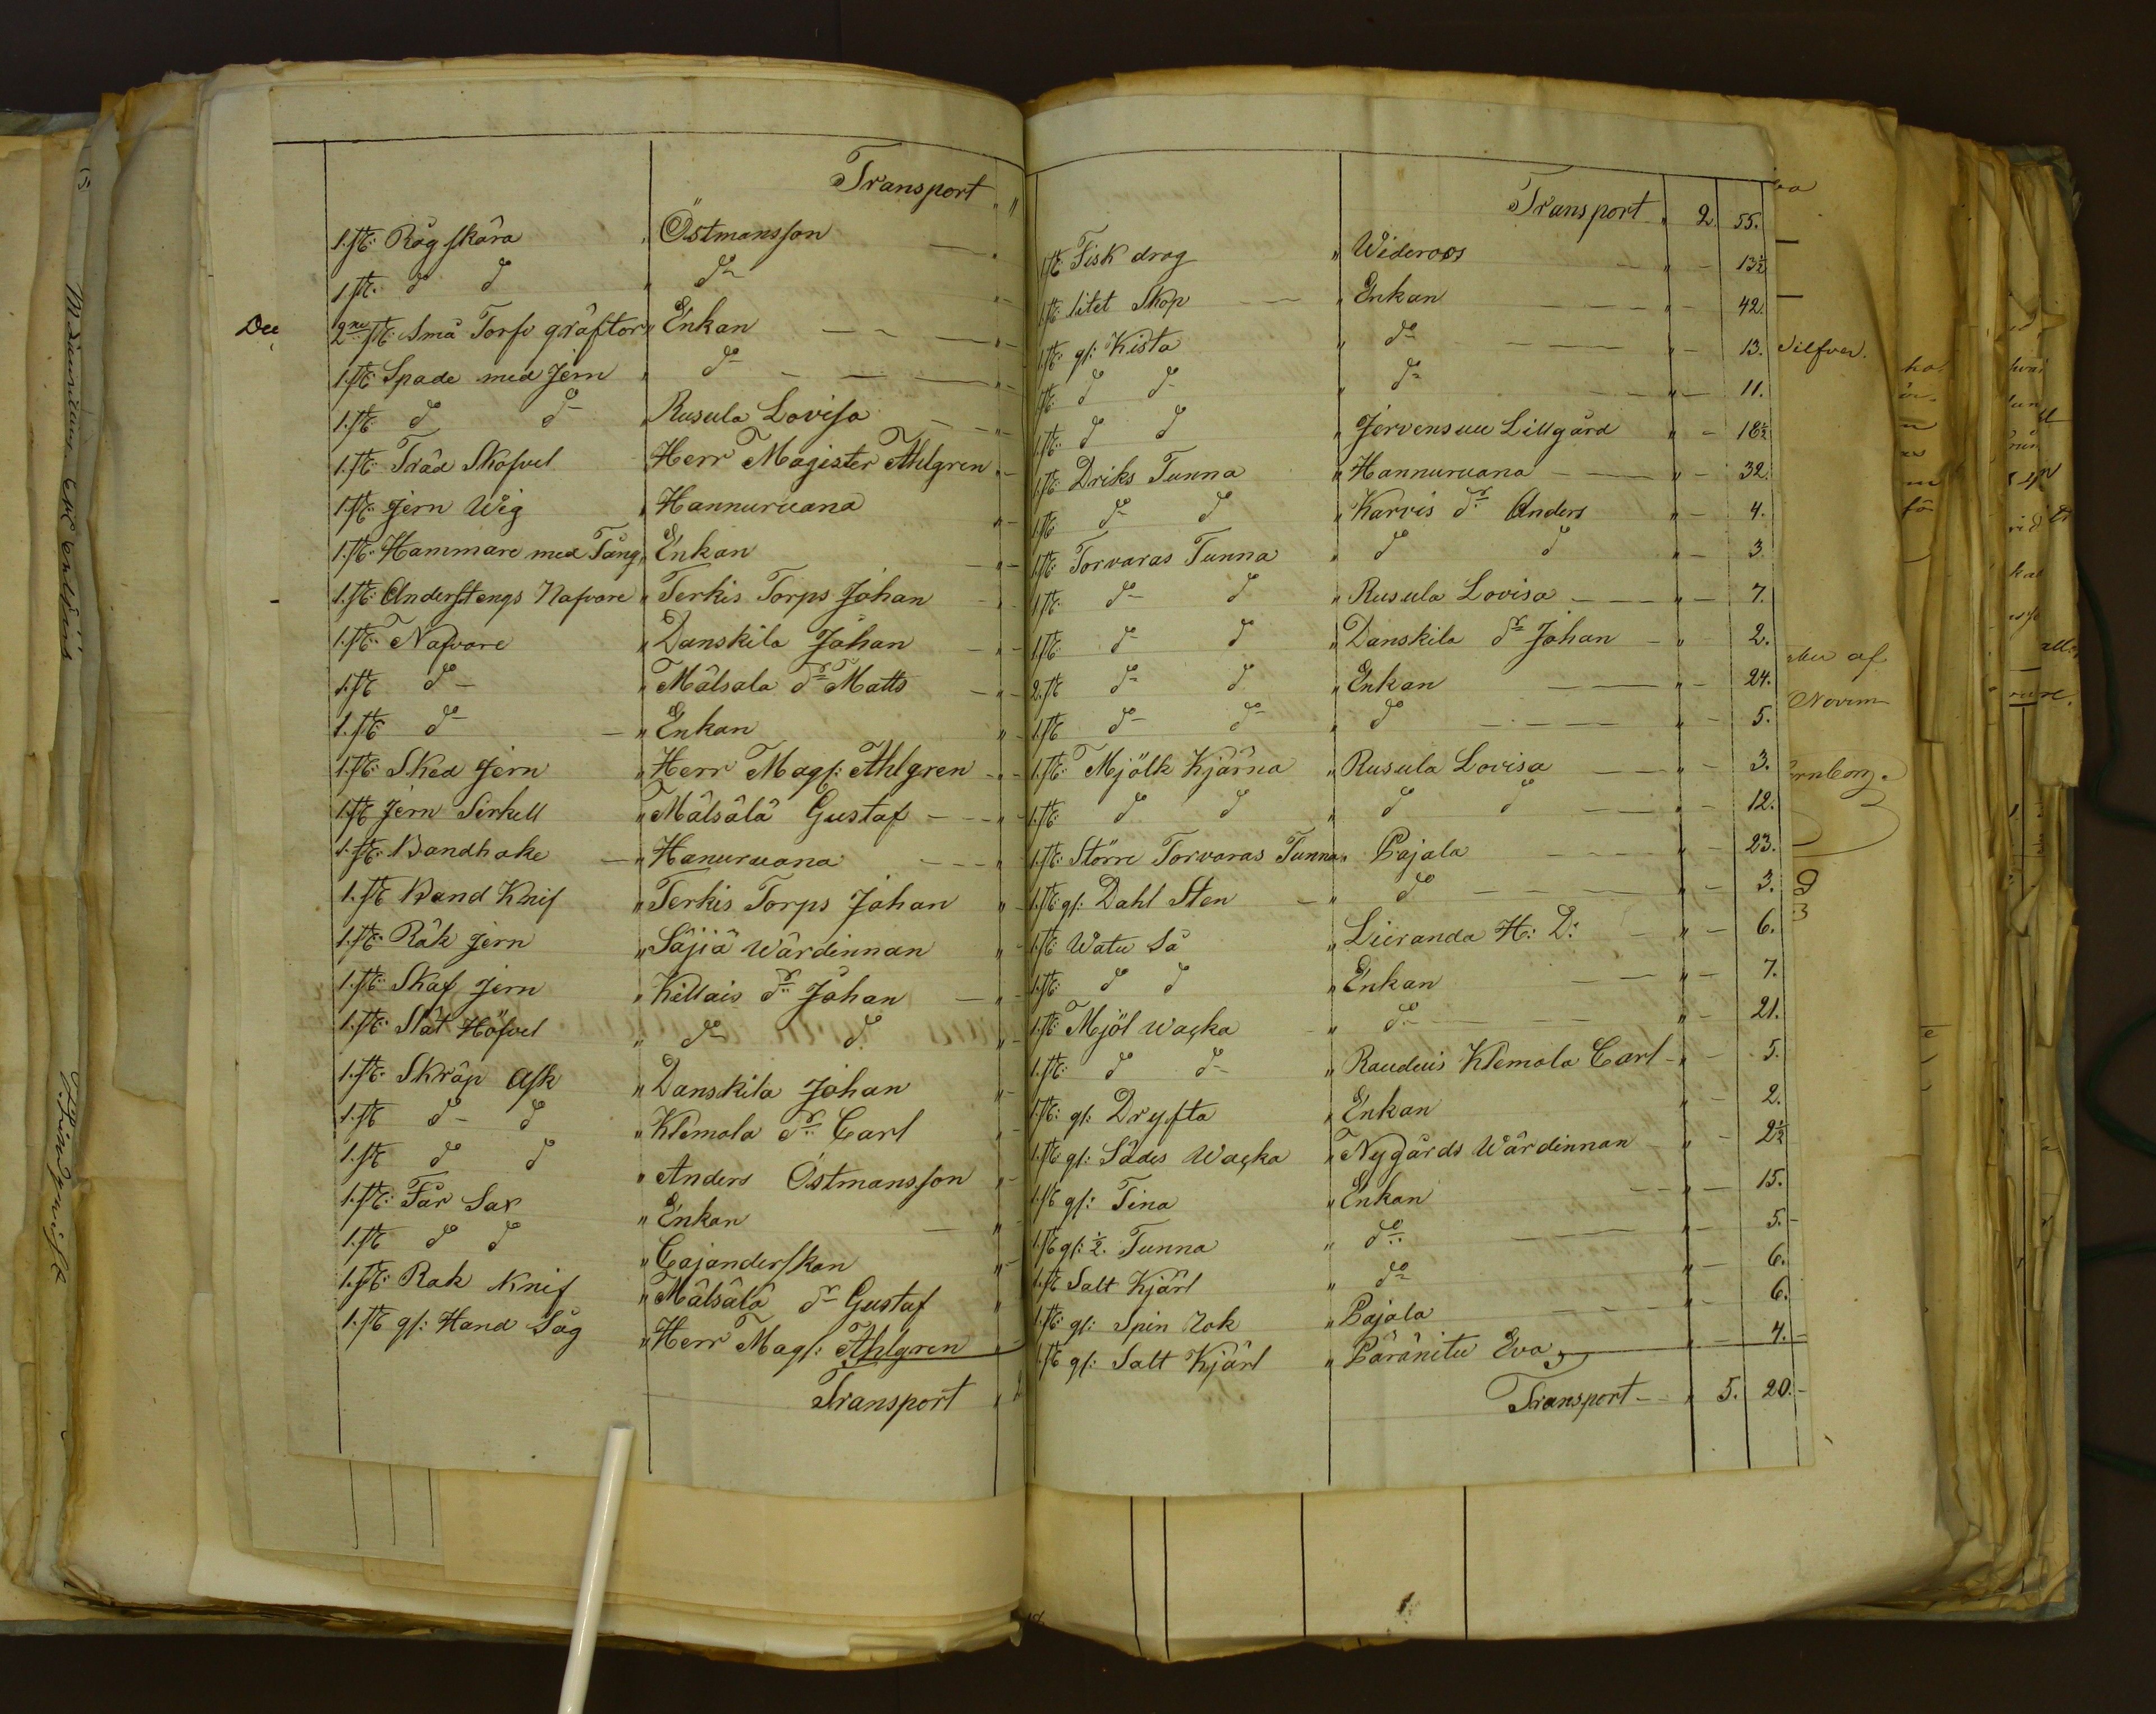 Transport "
1. st: Råg skära " Östmansson
1. st. do do " do
2ne st: Små Torf gräftor " Enkan
1. st: Spade med Jern " do
1. st: do do " Rusula Lovisa
1. st: Träd Skofvel Herr Magister Ahlgren
1. st: Jern Wig " Hannuruana
1. st: Hammare med Tång " Enkan
1. st: Anderstengs Nafvare " Terkis Torps Johan
1. st: Nafvare " Danskila Johan
1. st do " Mälsälä dr Matts
1. st: do " Enkan
1. st: Sked Jern " Herr Mags: Ahlgren
1. st Jern Sirkell " Mälsälä Gustaf
1. st: Bandhake " Hanuruana
1. st Band Knif " Terkis Torps Johan
1. st: Råk Jern " Säjiä Wärdinnan
1. st: Skaf Jern " Killais dr Johan
1. st: Slät Höfvel " do do
1. st: Skräp Ask " Danskila Johan
1. st do do " Klemola dr Carl
1. st do do " Anders Östmansson
1. st: Får Sax " Enkan
1. st do do " Cajanderskan
1. st: Rak Knif " Mälsälä dr Gustaf
1. st gl: Hand Såg " Herr Mags: Ahlgren
Transport " 2
Transport " 2. 55.
1 st: Fisk drag " Wideroos " 13½
1 st: litet Skåp " Enkan " 42.
1 st: gl: Kista " do " 13.
1 st: do do " do " 11.
1. st: do do " Jervensuu Lillgård " 18½
1. st: Driks Tunna " Hannuruana " 32.
1. st: do do " Karvis dr Anders " 4.
1 st: Torvaras Tunna " do do " 3.
1 st: do do " Rusula Lovisa " 7.
1. st: do do " Danskila dr Johan " 2.
2. st do do " Enkan " 24.
1. st do do " do " 5.
1. st: Mjölk Kjärna " Rusula Lovisa " 3.
1. st: do do " do do " 12.
1. st: Större Torvaras Tunna " Pajala " 23.
1. st: gl: Dahl Sten " do " 3.
1. st: Watu Så " Liiranda H: D: " 6.
1. st: do do " Enkan " 7.
1. st: Mjöl wacka " do " 21.
1. st: do do " Raudus Klemola Carl " 5.
1. st: gl: Dryfta " Enkan " 2.
1. st: gl: Sådes Wacka " Nygårds Wärdinnan " 2½
1. st gl: Tina " Enkan " 15.
1. st gl: ½ Tunna " do " 5.
1. st Salt Kjärl " do " 6.
1. st: gl: Spin Rok " Pajala " 6.
1. st gl: Salt Kjärl " Päränitu Eva " 4.
Transport " 5. 20.
Silfver.
af
Novem